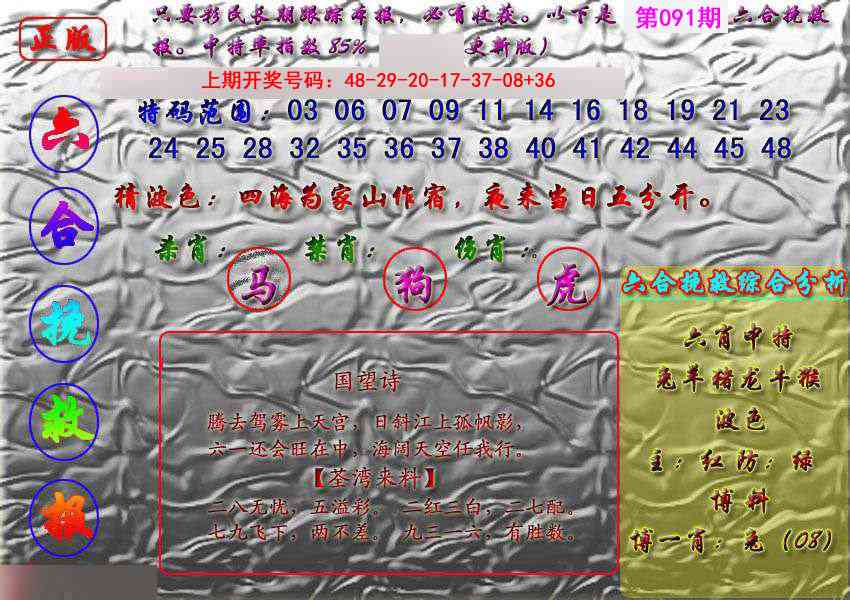 正版
只要彩民长期跟踪本报，必有收获。以下是 第091期 六合挽救
报。中特率指数85% 更新版）
上期开奖号码：48-29-20-17-37-08+36
特码范围：03 06 07 09 11 14 16 18 19 21 23
24 25 28 32 35 36 37 38 40 41 42 44 45 48
猜波色：四海为家山作宿，夜来当日五分开。
杀肖：马 禁肖：狗 伤肖：虎
六合挽救报
国望诗
腾去驾雾上天宫，日斜江上孤帆影，
六一还会旺在中，海阔天空任我行。
【荃湾来料】
二八无忧，五溢彩。 二红三白，二七配。
七九飞下，两不差。 九三一六，有胜数。
六合挽救综合分析
六肖中特
兔羊猪龙牛猴
波色
主：红防：绿
博料
博一肖：兔（08）